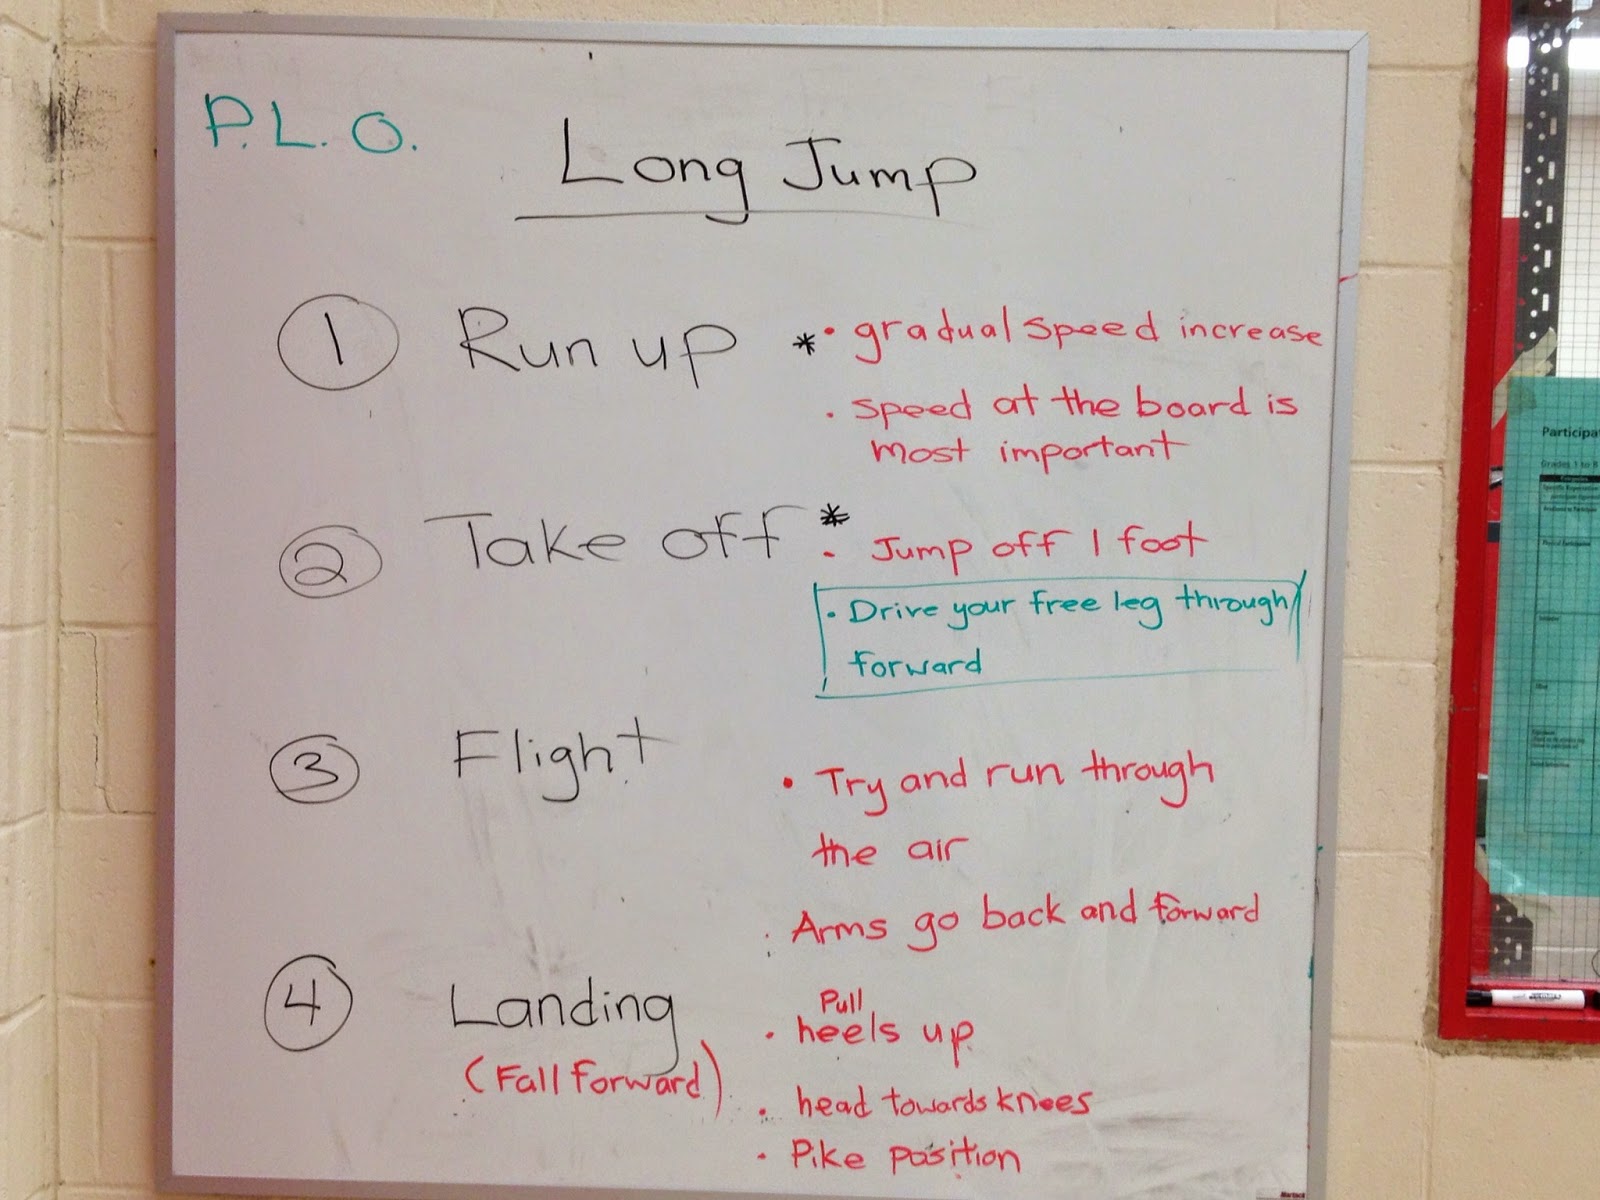 P.L.O.
Long Jump
1 Run up * • gradual speed increase
• speed at the board is
most important
2 Take off * • Jump off 1 foot
• Drive your free leg through
forward
3 Flight
• Try and run through
the air
• Arms go back and forward
4 Landing
(Fall forward)
Pull
• heels up
• head towards knees
• Pike position
Participa
Grades 1 to 8